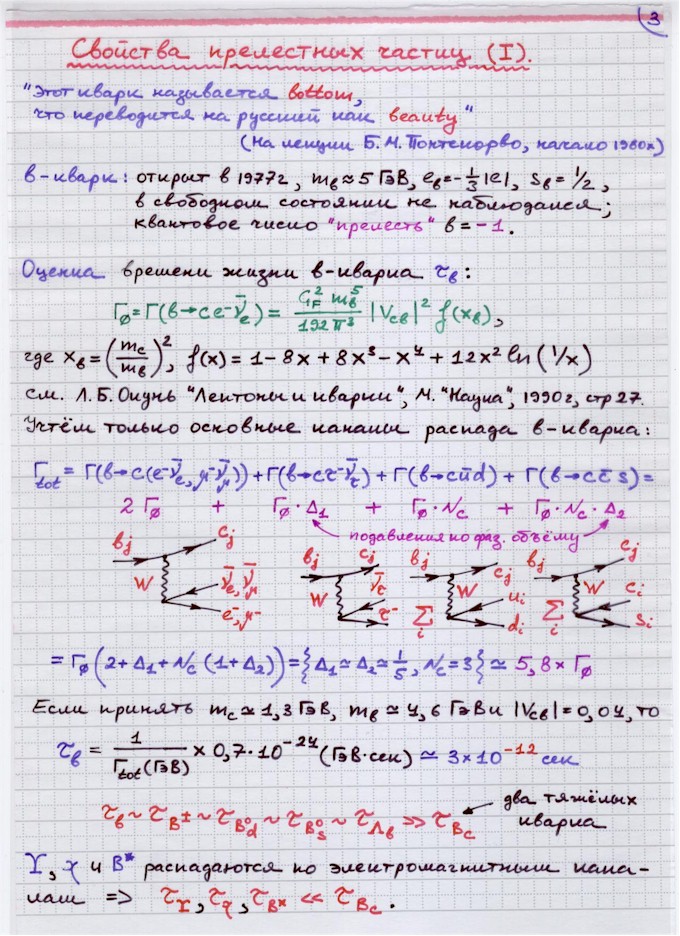 3
Свойства прелестных частиц (I).
"Этот кварк называется bottom,
что переводится на русский как beauty"
(На лекции Б. М. Понтекорво, начало 1980х)
b-кварк: открыт в 1977г, m_b ≈ 5 ГэВ, e_b = -1/3 |e|, s_b = 1/2,
в свободном состоянии не наблюдался;
квантовое число "прелесть" b = -1.
Оценка времени жизни b-кварка τ_b:
Γ_0 = Γ(b→c e⁻ ν̄_e) = G_F² m_b⁵ / 192π³ |V_cb|² f(x_b),
где x_b = (m_c/m_b)², f(x) = 1 - 8x + 8x³ - x⁴ + 12x² ln(1/x)
см. Л. Б. Окунь "Лептоны и кварки", М. "Наука", 1990г, стр 27.
Учтём только основные каналы распада b-кварка:
Γ_tot = Γ(b→c(e⁻ν̄_e, μ⁻ν̄_μ)) + Γ(b→cτ⁻ν̄_τ) + Γ(b→cūd) + Γ(b→cc̄s) =
2Γ_0 + Γ_0·Δ_1 + Γ_0·N_c + Γ_0·N_c·Δ_2
подавления по фаз. объёму
b_j c_j W ν̄_e, ν̄_μ e⁻, μ⁻
b_j c_j W ν̄_τ τ⁻
b_j c_j W Σ_i u_i d_i
b_j c_j W Σ_i c_i s_i
= Γ_0 (2 + Δ_1 + N_c (1 + Δ_2)) = {Δ_1 ≃ Δ_2 ≃ 1/5, N_c = 3} ≃ 5,8 × Γ_0
Если принять m_c ≃ 1,3 ГэВ, m_b ≃ 4,6 ГэВ и |V_cb| = 0,04, то
τ_b = 1/Γ_tot(ГэВ) × 0,7·10⁻²⁴ (ГэВ·сек) ≃ 3×10⁻¹² сек
τ_b ~ τ_B± ~ τ_B⁰_d ~ τ_B⁰_s ~ τ_Λ_b ≫ τ_B_c
два тяжёлых
кварка
Υ, χ и B* распадаются по электромагнитным кана-
лам => τ_Υ, τ_χ, τ_B* ≪ τ_B_c.